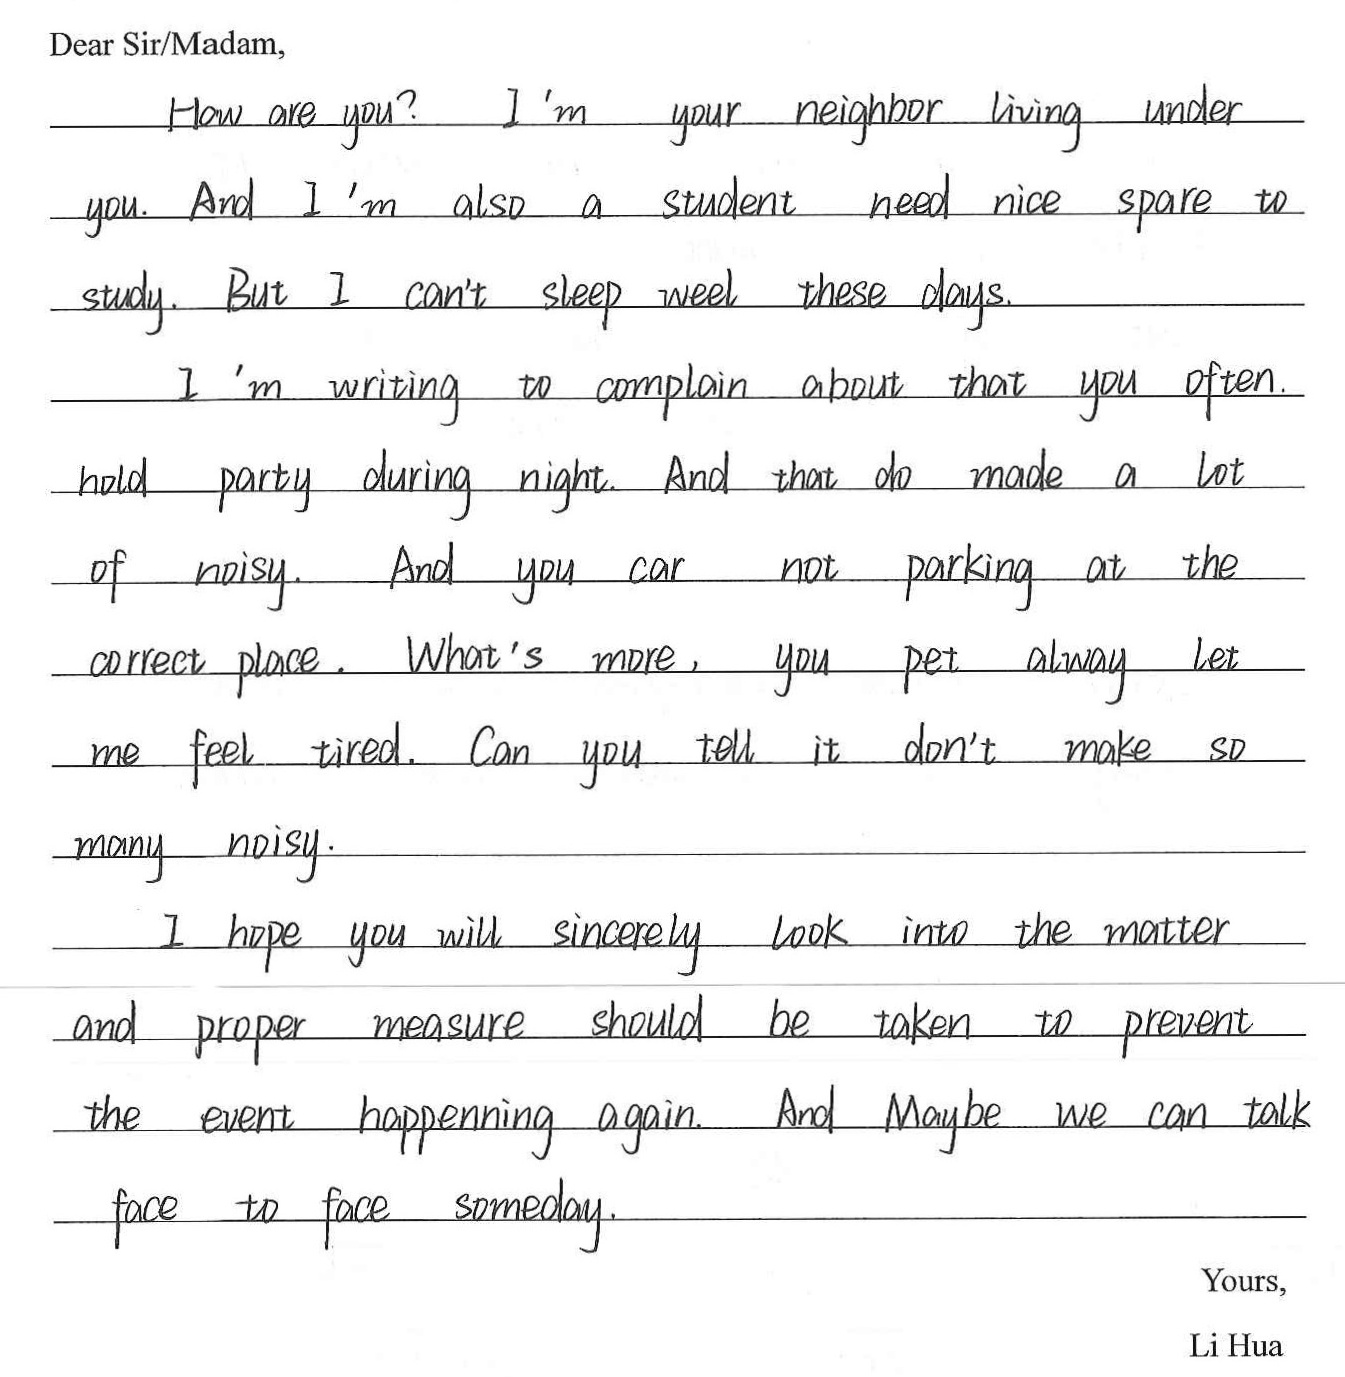 Dear Sir/Madam,
How are you? I'm your neighbor living under
you. And I'm also a student need nice spare to
study. But I can't sleep weel these days.
I'm writing to complain about that you often.
hold party during night. And that do made a lot
of noisy. And you car not parking at the
correct place. What's more, you pet alway let
me feel tired. Can you tell it don't make so
many noisy.
I hope you will sincerely look into the matter
and proper measure should be taken to prevent
the event happenning again. And Maybe we can talk
face to face someday.
Yours,
Li Hua